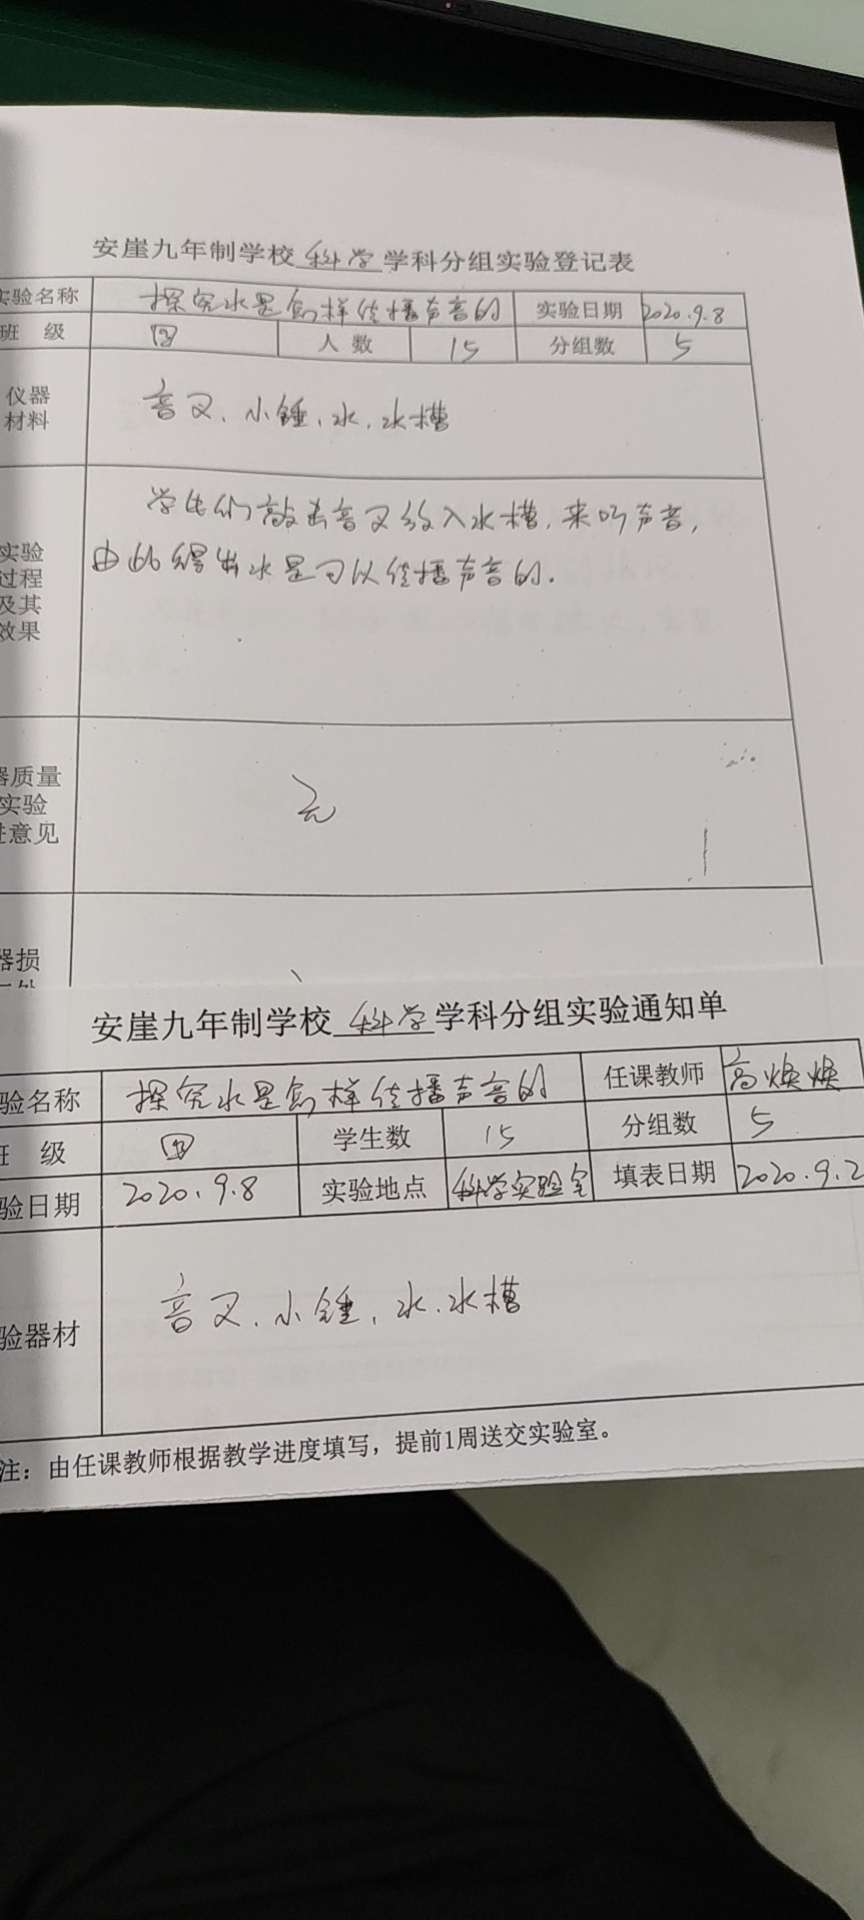 安崖九年制学校 科学 学科分组实验登记表
实验名称 探究水是怎样传播声音的 实验日期 2020.9.8
班 级 四 人数 15 分组数 5
仪器
材料
音叉、小锤、水、水槽
实验
过程
及其
效果
学生们敲击音叉放入水槽,来听声音,
由此得出水是可以传播声音的.
器质量
实验
进意见
无
器损
安崖九年制学校 科学 学科分组实验通知单
验名称 探究水是怎样传播声音的 任课教师 高焕焕
班 级 四 学生数 15 分组数 5
验日期 2020.9.8 实验地点 科学实验室 填表日期 2020.9.2
验器材 音叉、小锤、水、水槽
注:由任课教师根据教学进度填写,提前1周送交实验室。